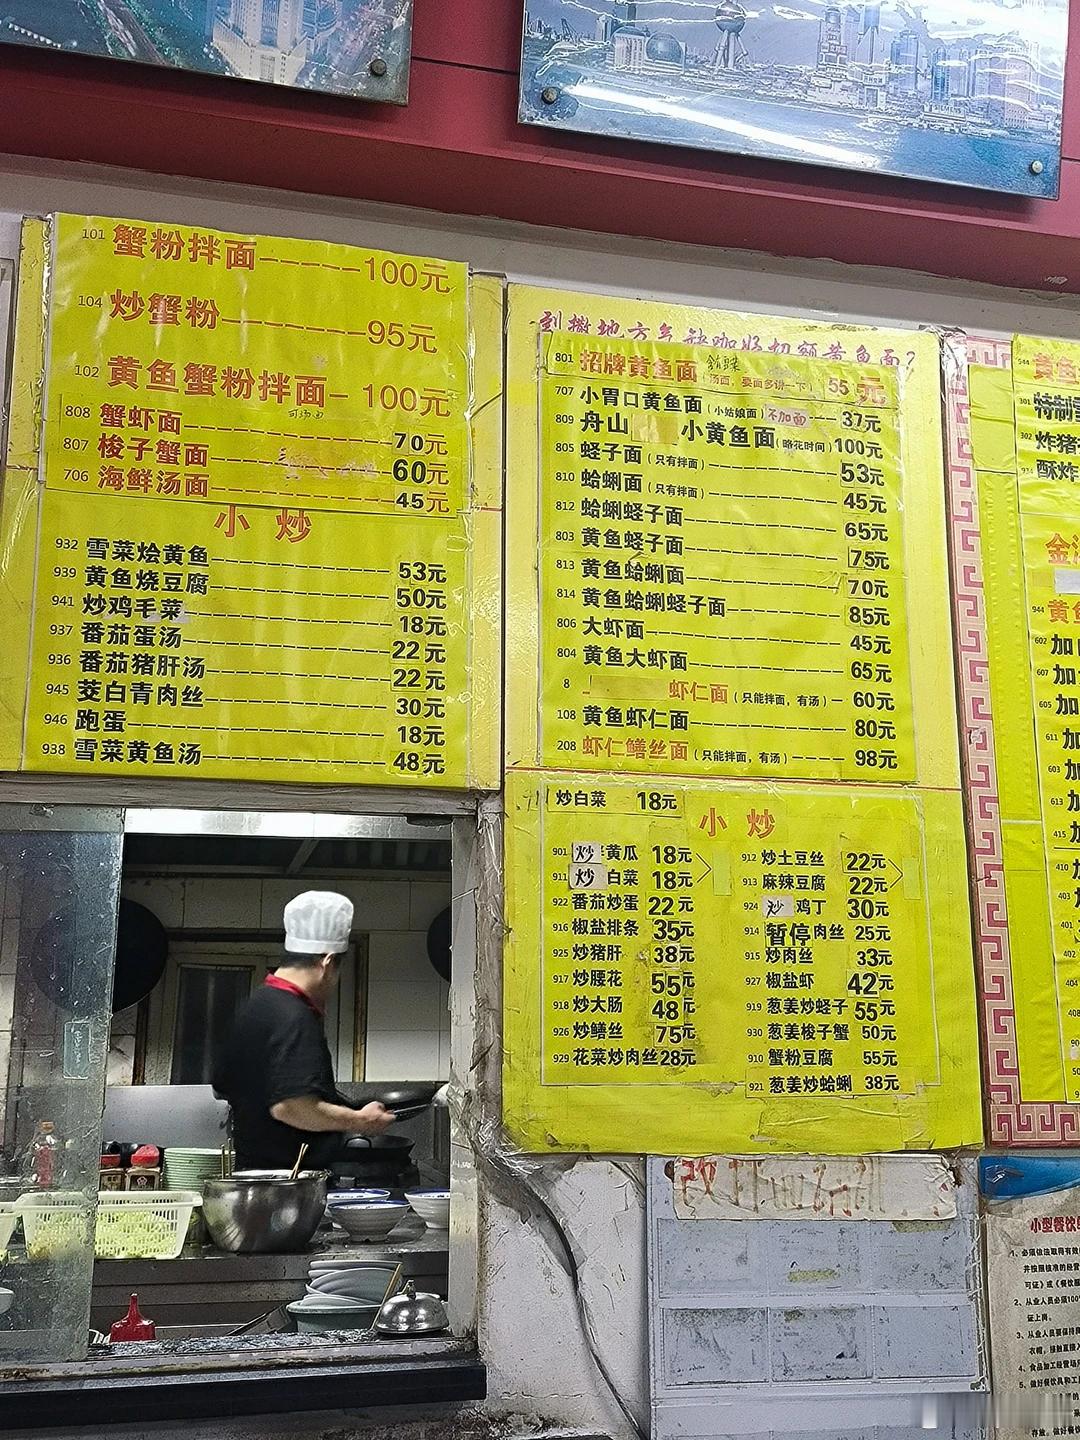 101 蟹粉拌面-----100元
104 炒蟹粉------95元
102 黄鱼蟹粉拌面-100元
可汤面
808 蟹虾面------70元
807 梭子蟹面------60元
706 海鲜汤面------45元
小炒
932 雪菜烩黄鱼------53元
939 黄鱼烧豆腐------50元
941 炒鸡毛菜------18元
937 番茄蛋汤------22元
936 番茄猪肝汤------22元
945 茭白青肉丝------30元
946 跑蛋------18元
938 雪菜黄鱼汤------48元
到搿地方
黄鱼面?
801 招牌黄鱼面(汤面,要面多讲一下) 55元
707 小胃口黄鱼面(小姑娘面)不加面---37元
809 舟山 小黄鱼面(略花时间)100元
805 蛏子面(只有拌面)------53元
810 蛤蜊面(只有拌面)------45元
812 蛤蜊蛏子面------65元
803 黄鱼蛏子面------75元
813 黄鱼蛤蜊面------70元
814 黄鱼蛤蜊蛏子面------85元
806 大虾面------45元
804 黄鱼大虾面------65元
8 虾仁面(只能拌面,有汤)-60元
108 黄鱼虾仁面------80元
208 虾仁鳝丝面(只能拌面,有汤)---98元
炒白菜 18元
小炒
901 炒黄瓜 18元
911 炒白菜 18元
922 番茄炒蛋 22元
916 椒盐排条 35元
925 炒猪肝 38元
917 炒腰花 55元
918 炒大肠 48元
926 炒鳝丝 75元
929 花菜炒肉丝28元
912 炒土豆丝 22元
913 麻辣豆腐 22元
924 炒鸡丁 30元
914 暂停肉丝 25元
915 炒肉丝 33元
927 椒盐虾 42元
919 葱姜炒蛏子 55元
930 葱姜梭子蟹 50元
910 蟹粉豆腐 55元
921 葱姜炒蛤蜊 38元
544 黄鱼
301 特制雪
302 炸猪
酥炸
944 黄鱼
602 加
607 加
605 加
611 加
603 加
613 加
415 加
小型餐饮
1、必须依法取得有效
并按照核准的经营
2、从业人员必须100
证上岗。
3、从业人员要保持
4、食品加工经营场
5、做好餐饮具和工